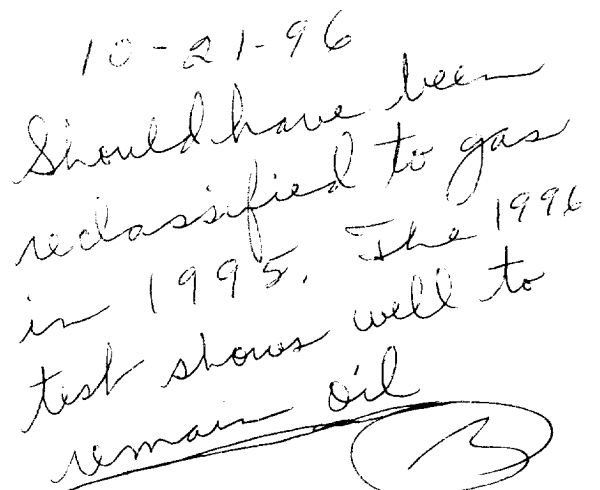 10-21-96
Should have been
reclassified to gas
in 1995. The 1996
test shows well to
remain oil
B